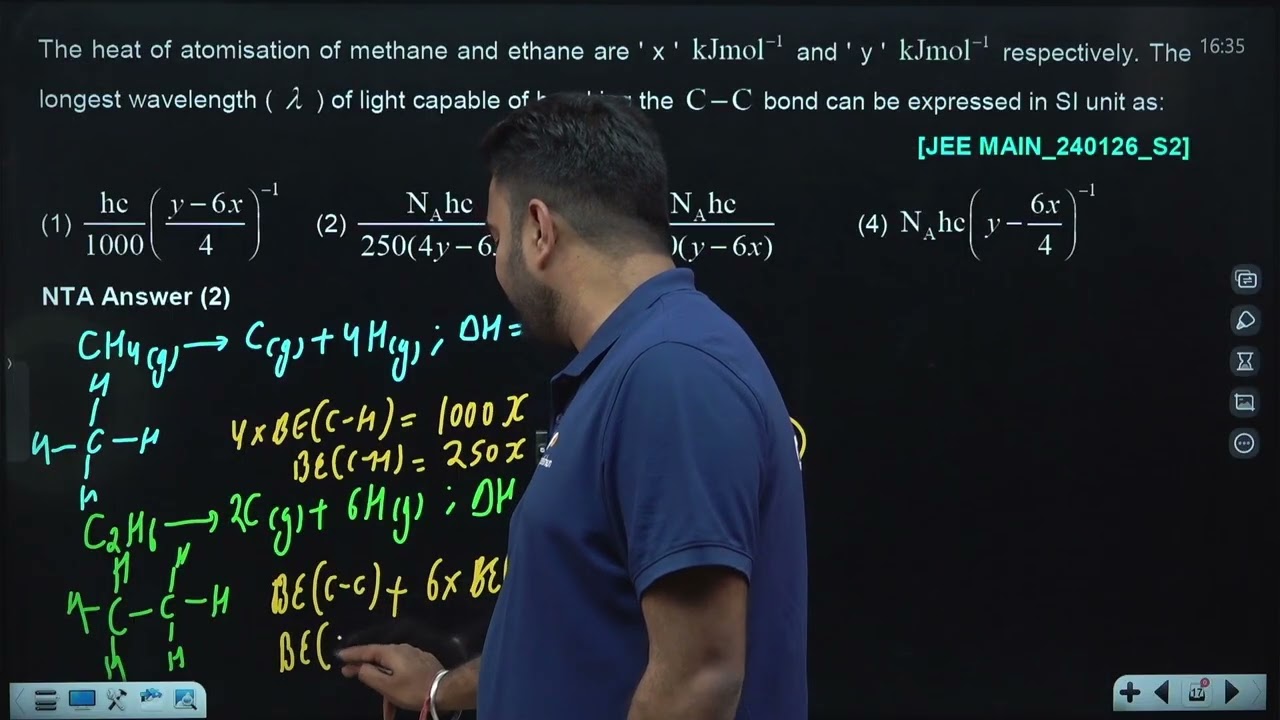 The heat of atomisation of methane and ethane are ' x ' kJmol⁻¹ and ' y ' kJmol⁻¹ respectively. The 16:35
longest wavelength ( λ ) of light capable of the C–C bond can be expressed in SI unit as:
[JEE MAIN_240126_S2]
(1) hc/1000 ((y−6x)/4)⁻¹ (2) N_A hc / 250(4y−6x N_A hc / (y−6x) (4) N_A hc (y − 6x/4)⁻¹
NTA Answer (2)
CH₄(g) → C(g) + 4H(g) ; ΔH =
H
H–C–H
H
4×BE(C–H) = 1000x
BE(C–H) = 250x
C₂H₆ → 2C(g) + 6H(g) ; ΔH
H H
H–C–C–H
H H
BE(C–C) + 6×BE
BE(
17